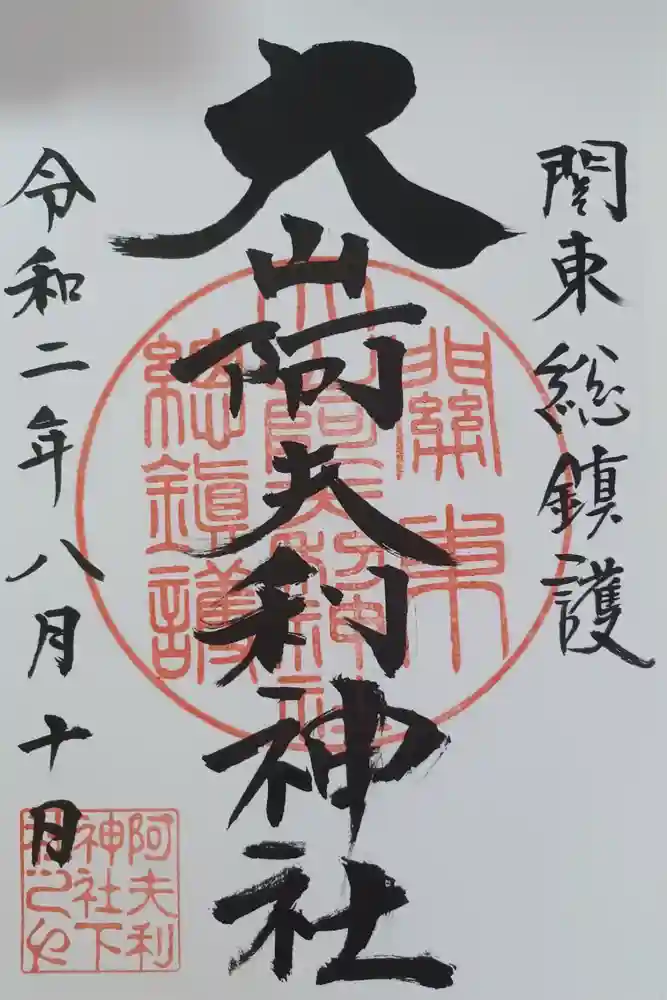 関東総鎮護
大山阿夫利神社
令和二年八月十日
關東
大山阿夫利神社
總鎮護
阿夫利
神社下